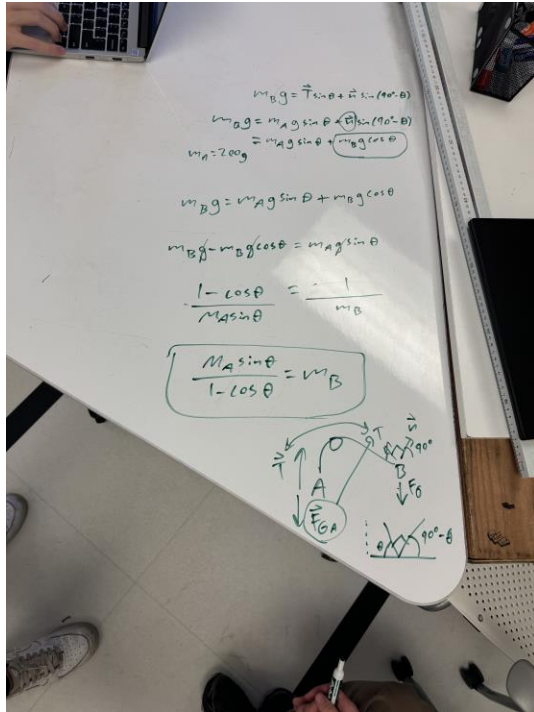 m_B g = T⃗ sinθ + n⃗ sin(90°-θ)
m_B g = m_A g sinθ + n⃗ sin(90°-θ)
m_A = 200g
= m_A g sinθ + m_B g cosθ
m_B g = m_A g sinθ + m_B g cosθ
m_B g - m_B g cosθ = m_A g sinθ
(1 - cosθ)/(M_A sinθ) = 1/m_B
(M_A sinθ)/(1 - cosθ) = m_B
T⃗ T n⃗ 90°
A B
F⃗_GA F_G
θ 90°-θ